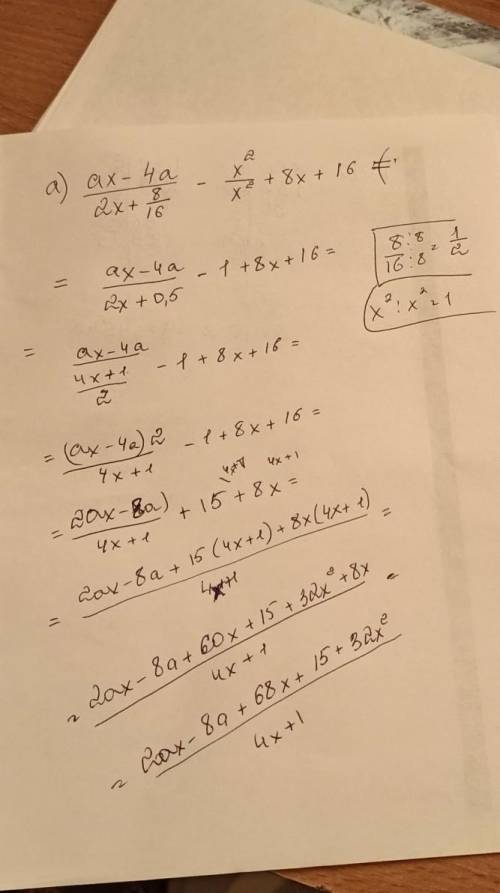 а) (ax-4a)/(2x+8/16) - x²/x² + 8x + 16 =
= (ax-4a)/(2x+0,5) - 1 + 8x + 16 =
8:8/16:8 = 1/2
x² : x² = 1
= (ax-4a)/((4x+1)/2) - 1 + 8x + 16 =
= (ax-4a)2/(4x+1) - 1 + 8x + 16 =
4x+1 4x+1
= 2ax-8a)/(4x+1) + 15 + 8x =
= (2ax-8a+15(4x+1)+8x(4x+1))/(4x+1) =
= (2ax-8a+60x+15+32x²+8x)/(4x+1) =
= (2ax-8a+68x+15+32x²)/(4x+1)